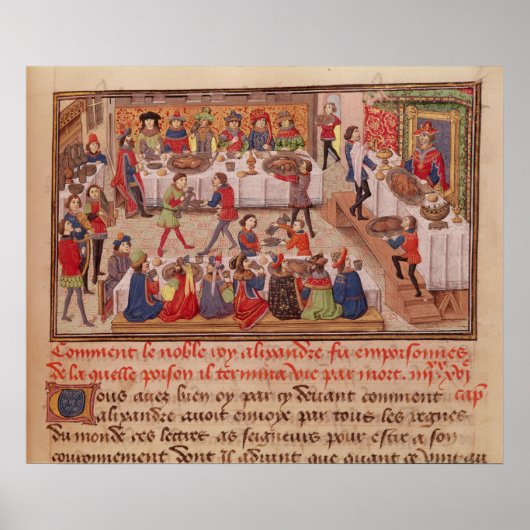 Comment le noble roy alixandre fu empoisonnes
de la quelle poison il termina vie par mort. iiijxxxvi
Vous avez bien oy par cy devant comment cap
alixandre avoit envoye par tous les regnes
du monde ces lettres as seigneurs pour estre a son
couronnement dont il advint que quant ce vint au